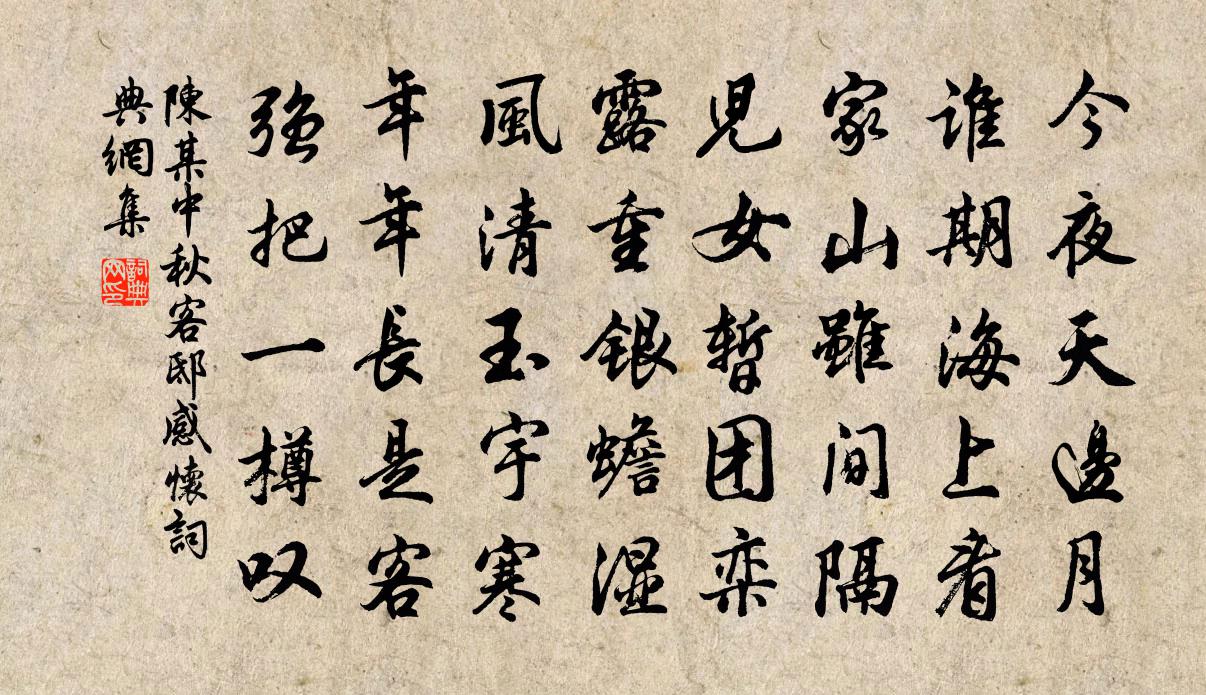 今夜天邊月
谁期海上看
家山雖间隔
児女暫团栾
露重銀蟾湿
風清玉宇寒
年年長是客
强把一樽叹
陳某中秋客邸感懷詞
典網集
詞典网印